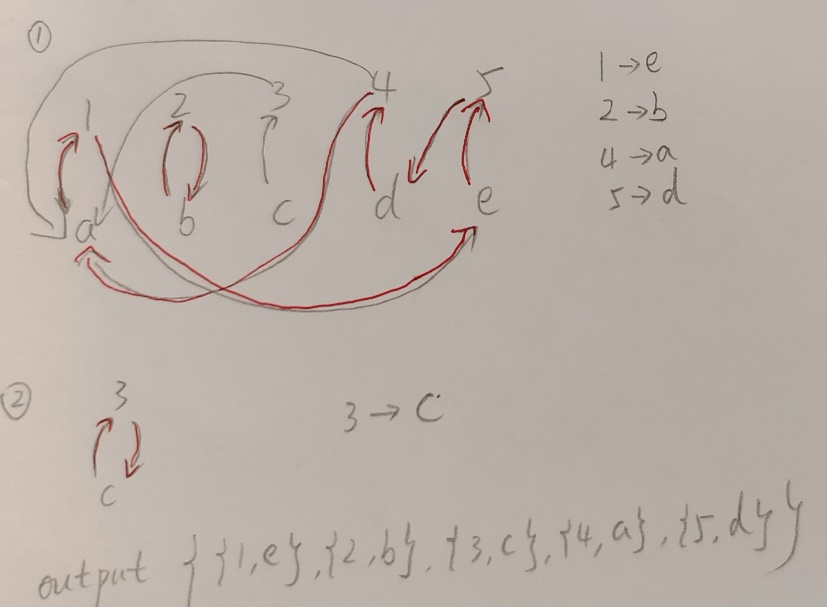 ①
1 2 3 4 5
a b c d e
1→e
2→b
4→a
5→d
②
3
c
3→c
output {{1,e},{2,b},{3,c},{4,a},{5,d}}